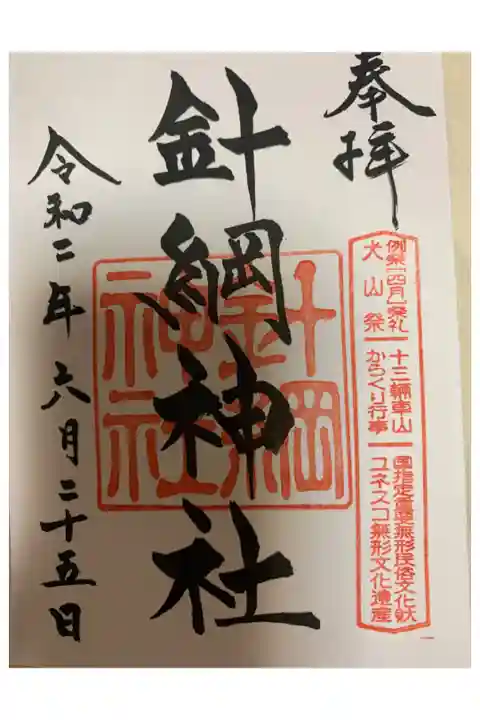 奉拝
例祭「四月」祭礼
犬山祭
十三輌車山
からくり行事
国指定重要無形民俗文化財
ユネスコ無形文化遺産
針綱神社
針綱
神社
令和二年六月二十五日